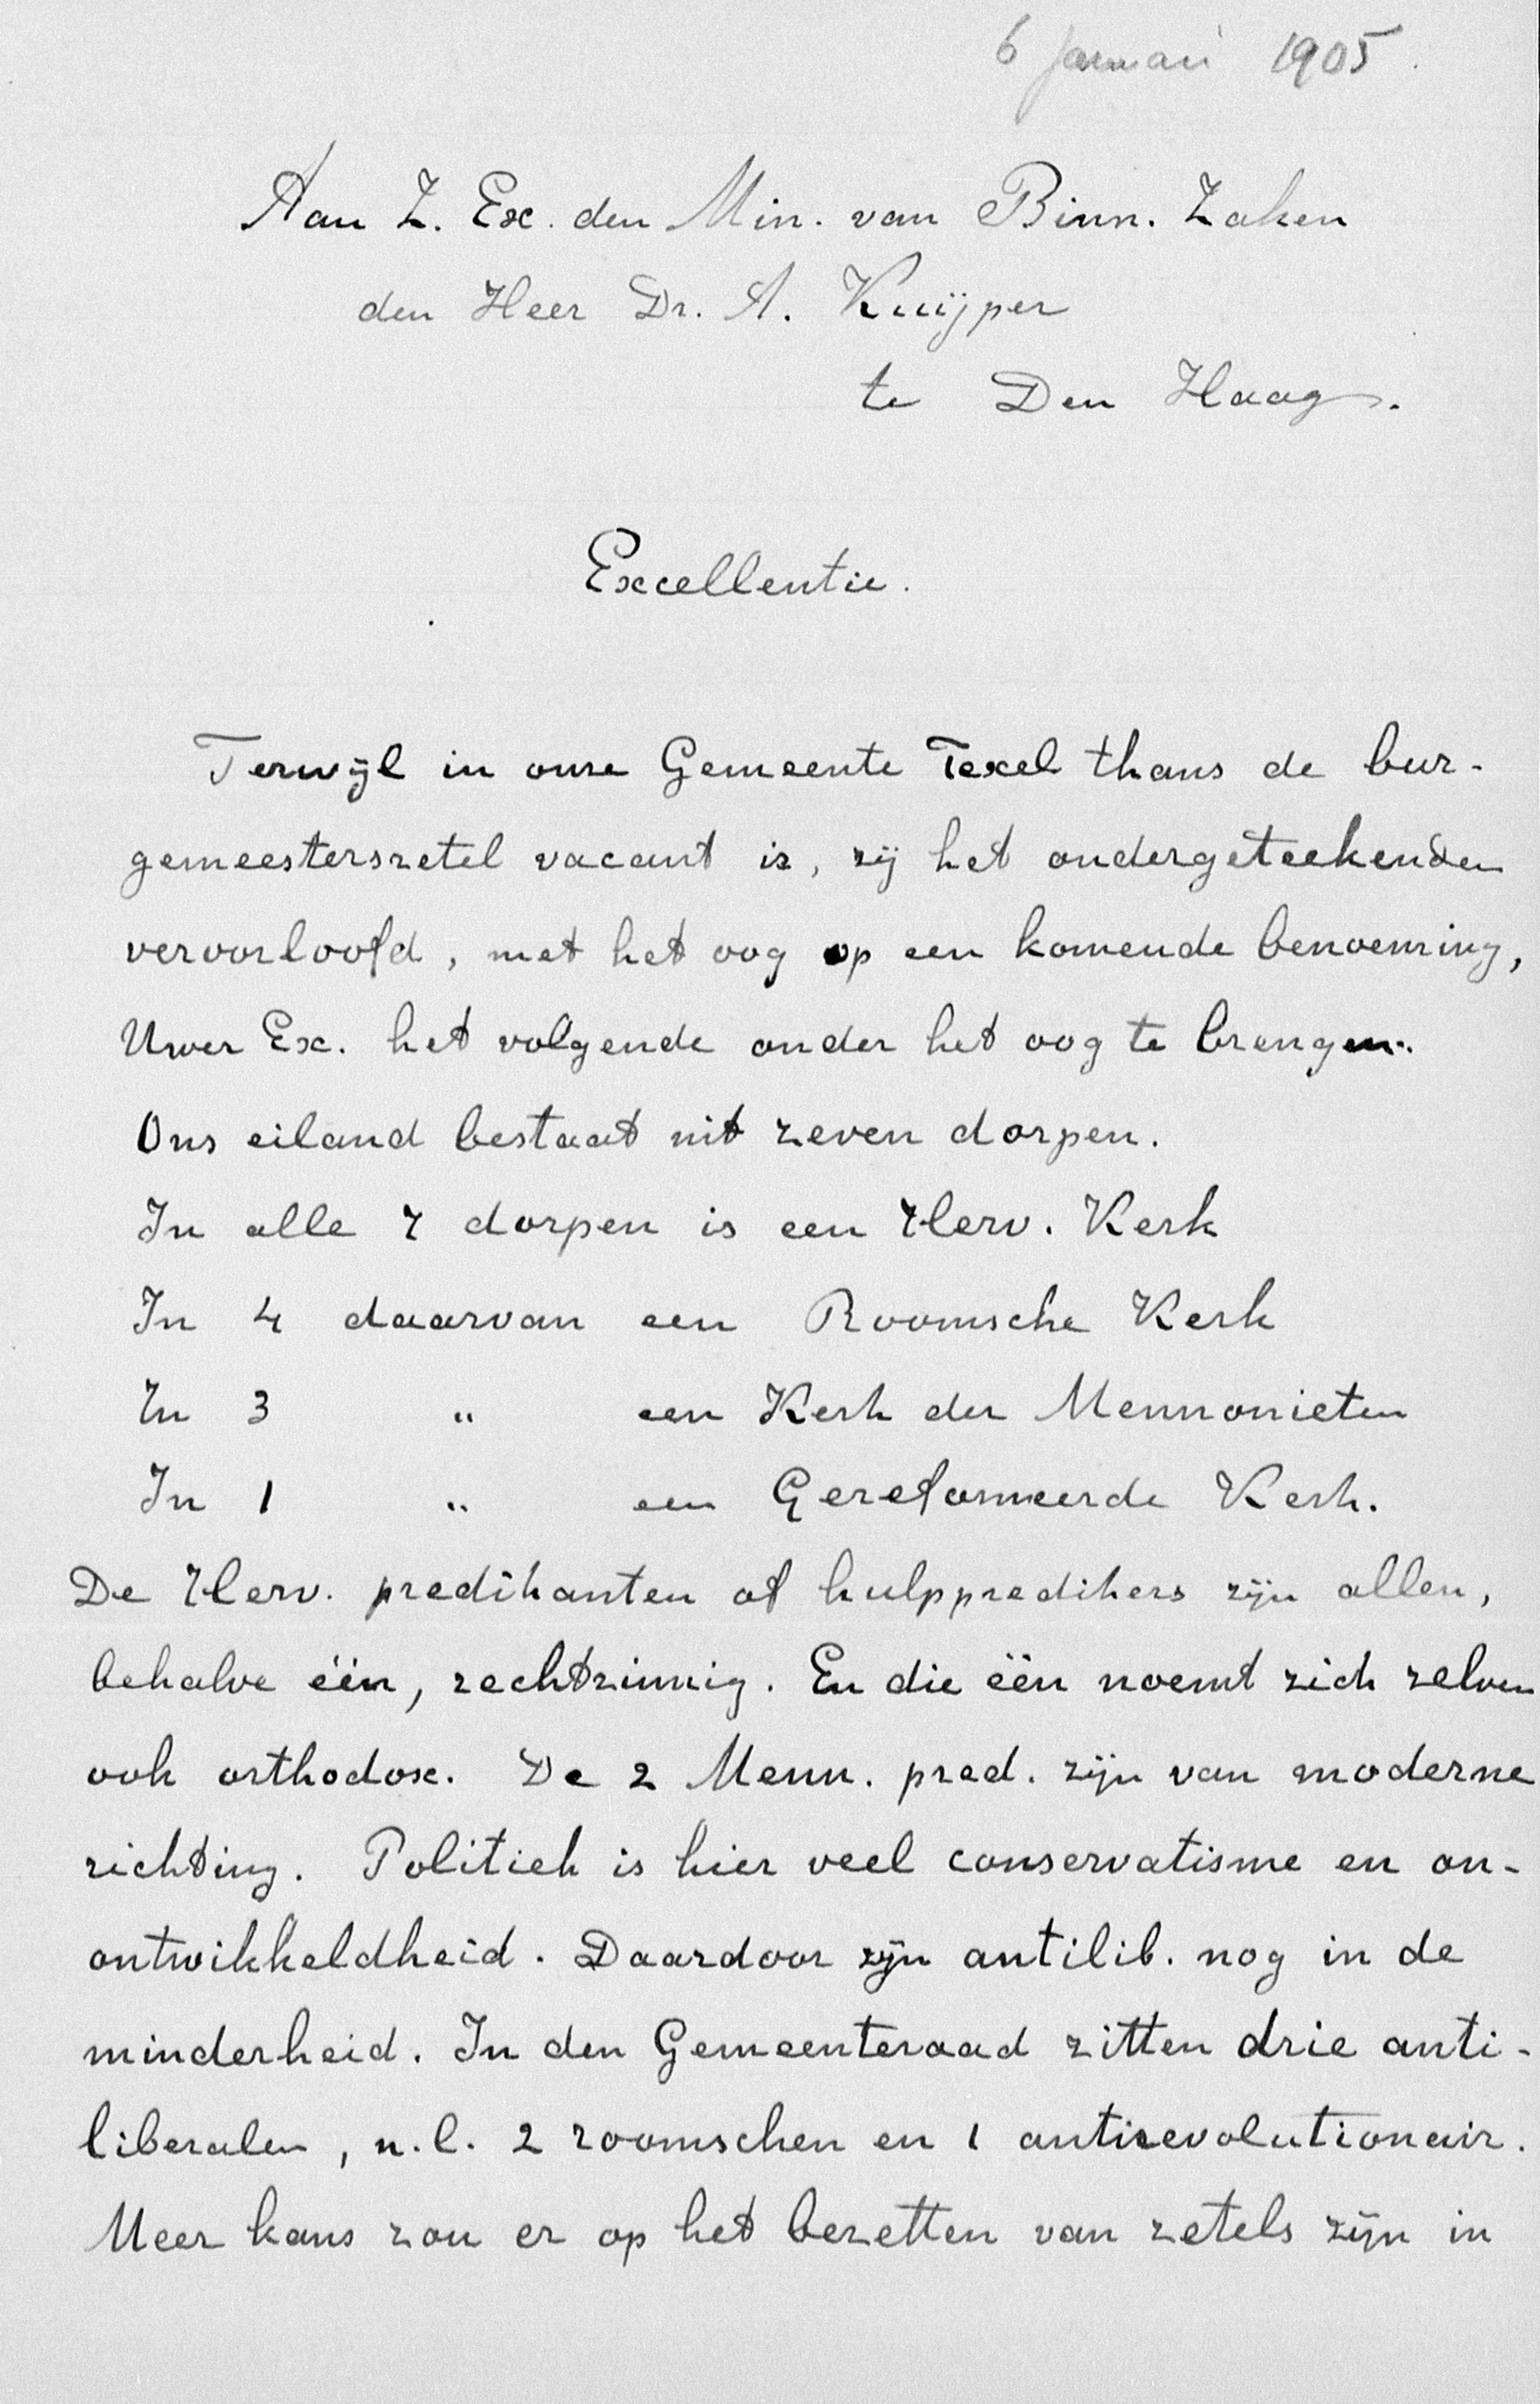 6 Januari 1905.
Aan Z. Ex. den Min. van Binn. Zaken
den Heer Dr. A. Kuijper
te Den Haag.
Excellentie.
Terwijl in onze Gemeente Texel thans de bur-
gemeesterszetel vacant is, zij het ondergeteekenden
veroorloofd, met het oog op een komende benoeming,
Uwer Ex. het volgende onder het oog te brengen.
Ons eiland bestaat uit zeven dorpen.
In alle 7 dorpen is een Herv. Kerk
In 4 daarvan een Roomsche Kerk
In 3 " een Kerk der Mennonieten
In 1 " een Gereformeerde Kerk.
De Herv. predikanten of hulppredikers zijn allen,
behalve één, rechtzinnig. En die één noemt zich zelven
ook orthodox. De 2 Menn. pred. zijn van moderne
richting. Politiek is hier veel conservatisme en on-
ontwikkeldheid. Daardoor zijn antilib. nog in de
minderheid. In den Gemeenteraad zitten drie anti-
liberalen, n.l. 2 roomschen en 1 antirevolutionair.
Meer kans zou er op het bezetten van zetels zijn in